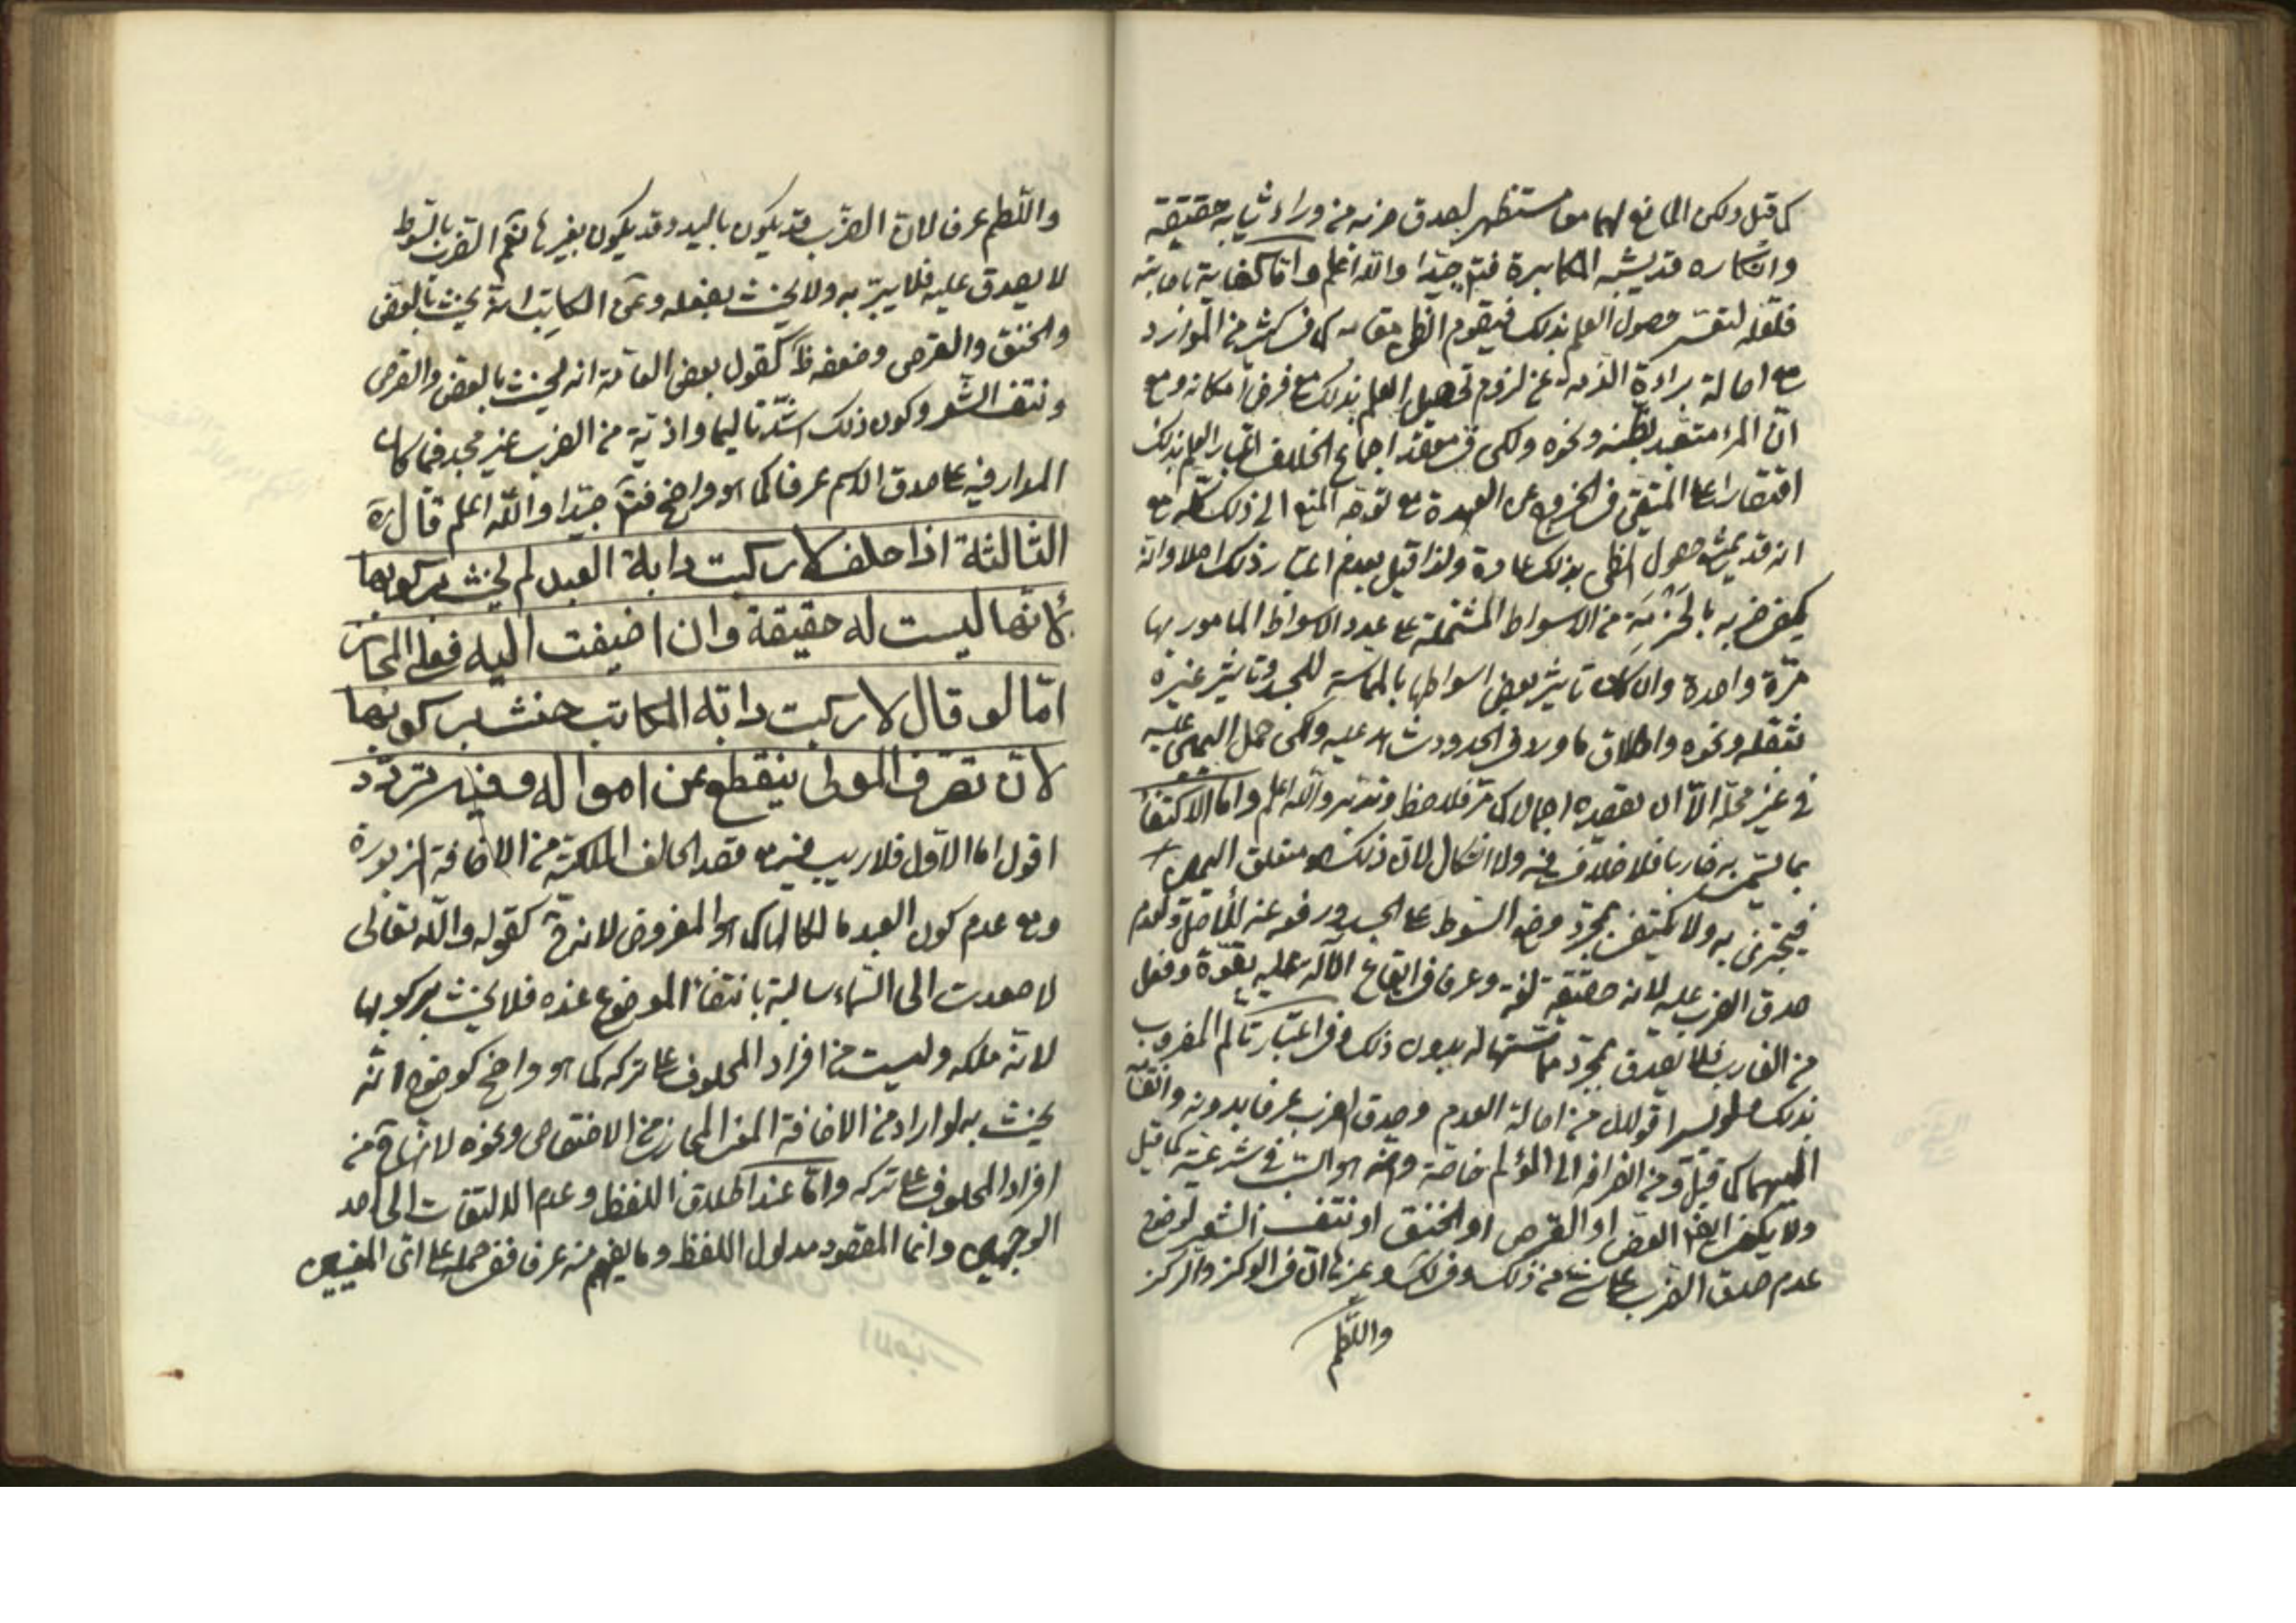 كما قيل ولكن المانع لهما معا مستظهر لصدق ضربه من وراء ثيابه حقيقة
وانكاره قد يشبه المكابرة فتدبر جيّدا والله اعلم وامّا كفاية
فلعلّه لتعسّر حصول العلم بذلك فيقوم الظن مقامه كما في كثير من الموارد
مع اصالة براءة الذمة عن لزوم تحصيل العلم بذلك مع فرض امكانه ومع
انّ المرء متعبد بظنه ونحوه ولكن في معقد اجماع الخلاف اعتبار العلم بذلك
اقتصارا على المتيقن في الخروج عن العهدة مع توجّه المنع الى ذلك كلّه مع
انه قد يمنع حصول الظن بذلك عادة ولذا قيل بعدم اعتبار ذلك اصلا وانّه
يكفي ضربه بالحزمة من الاسواط المشتملة على عدد الاسواط المامور بها
مرّة واحدة وان كان تاثير بعض اسواطها بالمماسة للجسد وتاثير غيره
بثقله ونحوه واطلاق ما ورد في الحدود شاهد عليه ولكن حمل اليمين عليه
في غير محلّه الّا ان يقصده اجمالا كما مرّ فلاحظ وتدبر والله اعلم وامّا الاكتفاء
بما يسمّى به ضاربا فلا خلاف فيه ولا اشكال لان ذلك هو متعلق اليمين
فيجتزى به ولا يكتفى بمجرّد وضع السّوط على الجسد ورفعه عنه للأصل ولعدم
صدق الضرب عليه لانه حقيقة لغة وعرفا في ايقاع الآلة عليه بقوّة وفعل
من الضارب فلا يصدق بمجرّد مماسّتها له بدون ذلك وفي اعتبار تألم المضروب
بذلك قولان من اصالة العدم وصدق الضرب عرفا بدونه
كما قيل ومن انصرافه الى المؤلم خاصّة وانّه هو السبب في شرعيّته كما قيل
ولا يكفي ايضا العضّ او القرص او الخنق او نتف الشعر لوضوح
عدم صدق الضرب على شيء من ذلك وفي لك وغيرها انّ في الوكز والركز
واللّطم
واللّطم عرفا لانّ الضّرب قد يكون باليد وقد يكون بغيرها نعم الضرب بالسّوط
لا يصدق عليه فلا يبرّ به ولا يحنث بفعله وعن الكاتب انّه يحنث بالعض
والخنق والقرص وضعفه ظ كقول بعض العامّة انه يحنث بالعض والقرص
ونتف الشعر وكون ذلك اشدّ تاليما واذيّة من الضرب غير مجد فيما كان
المدار فيه على صدق الاسم عرفا كما هو واضح فتدبر جيّدا والله اعلم قال ره
الثالثة اذا حلف لا ركبت دابة العبد لم يحنث بركوبها
لأنّها ليست له حقيقة وان اضيفت اليه فعلى المجاز
امّا لو قال لا ركبت دابّة المكاتب حنث بركوبها
لانّ تصرّف المولى ينقطع عن امواله وفيه تردّد
اقول اما الاول فلا ريب فيه مع قصد الحالف الملكيّة من الاضافة المزبورة
ومع عدم كون العبد مالكا لها كما هو المفروض لانه ح كقوله والله تعالى
لا صعدت الى السّماء سالبة بانتفاء الموضوع عنده فلا يحنث بركوبها
لانّه ملكه وليست من افراد المحلوف على تركه كما هو واضح كوضوح انّه
يحنث به لو اراد من الاضافة المعنى المجازي من الاختصاص ونحوه لانها ح من
افراد المحلوف على تركه وامّا عند اطلاق اللفظ وعدم الالتفات الى احد
الوجهين وانما المقصود مدلول اللفظ وما يفهم منه عرفا ففي حمله على اىّ المعنيين